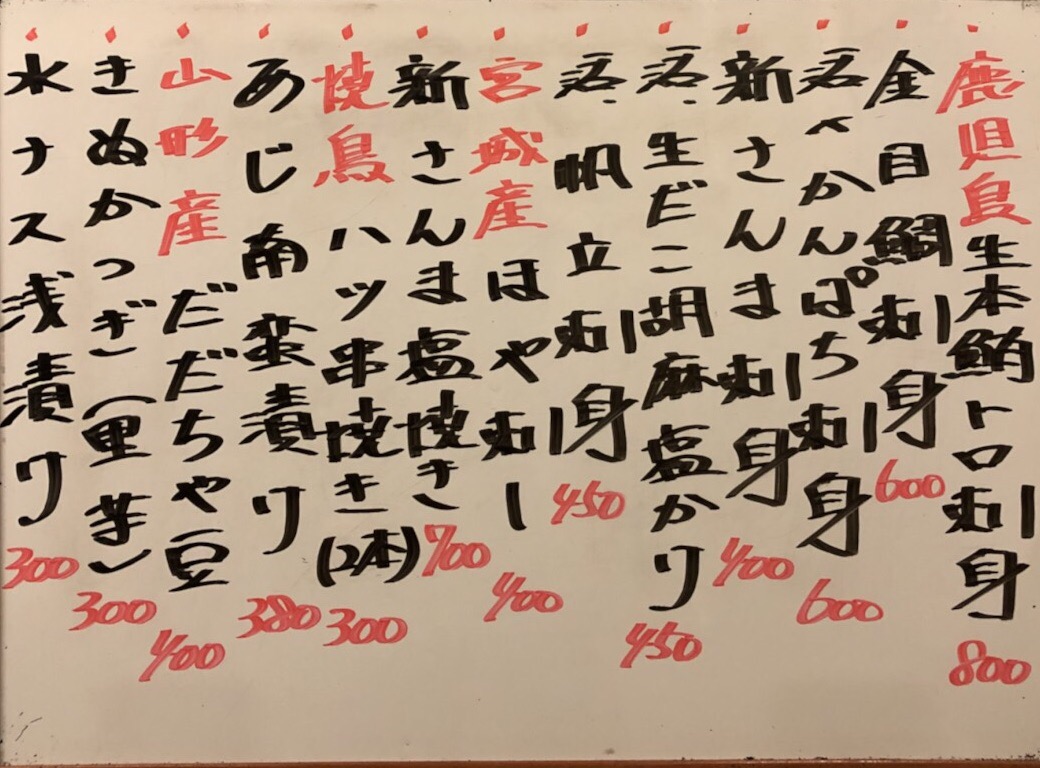 鹿児島生本鮪トロ刺身 800
金目鯛刺身 600
活〆かんぱち刺身 600
新さんま刺身 400
活.生だこ胡麻塩かけ 450
活.帆立刺身 450
宮城産ほや刺し 400
新さんま塩焼き 700
焼鳥ハツ串焼き(2本) 300
あじ南蛮漬け 380
山形産だだちゃ豆 400
きぬかつぎ(里芋) 300
水ナス浅漬け 300